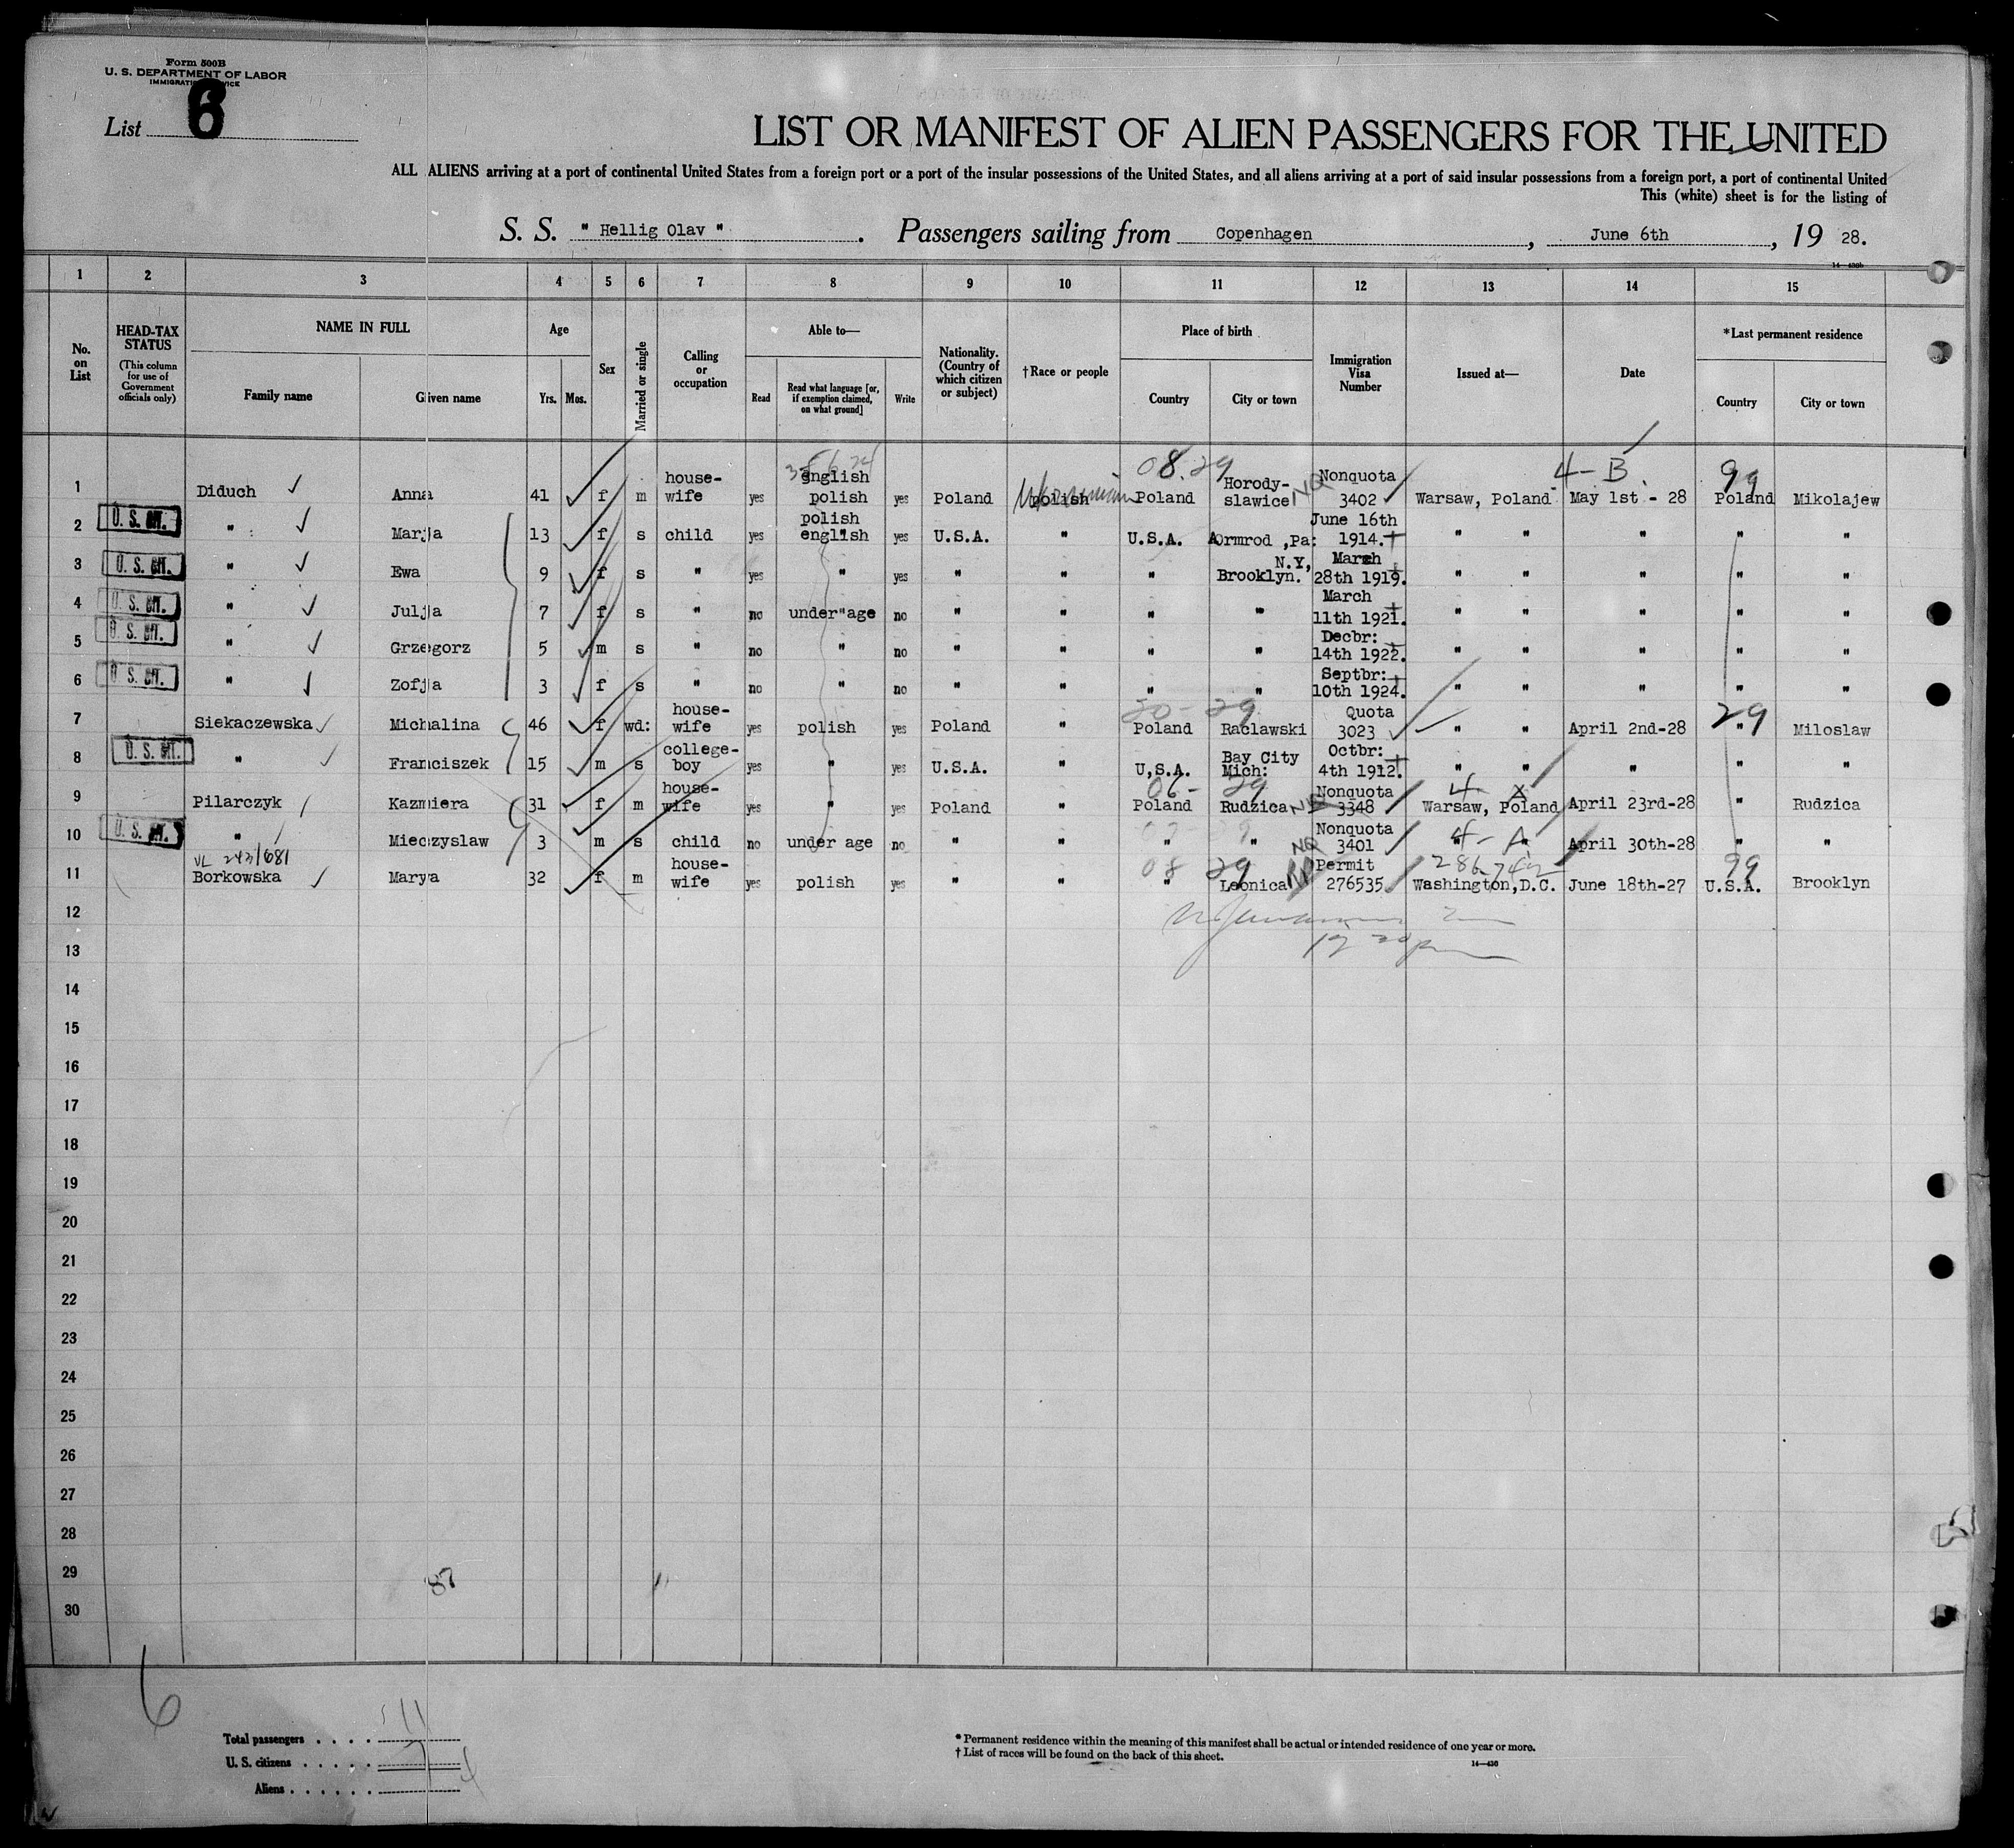 Form 500B
U. S. DEPARTMENT OF LABOR
IMMIGRATION SERVICE
List 6
LIST OR MANIFEST OF ALIEN PASSENGERS FOR THE UNITED
ALL ALIENS arriving at a port of continental United States from a foreign port or a port of the insular possessions of the United States, and all aliens arriving at a port of said insular possessions from a foreign port, a port of continental United
This (white) sheet is for the listing of
S. S. " Hellig Olav ". Passengers sailing from Copenhagen, June 6th, 19 28.
14—430b
1 2 3 4 5 6 7 8 9 10 11 12 13 14 15
No. on List
HEAD-TAX STATUS (This column for use of Government officials only)
NAME IN FULL
Family name Given name
Age
Yrs. Mos.
Sex
Married or single
Calling or occupation
Able to—
Read
Read what language [or, if exemption claimed, on what ground]
Write
Nationality. (Country of which citizen or subject)
†Race or people
Place of birth
Country City or town
Immigration Visa Number
Issued at—
Date
*Last permanent residence
Country City or town
08.29 4-B. 99
1 Diduch Anna 41 f m house-wife yes english polish yes Poland polish Ukrainian Poland Horody-slawice NQ Nonquota 3402 Warsaw, Poland May 1st - 28 Poland Mikolajew
2 U. S. CIT. " Marja 13 f s child yes polish english " yes U.S.A. " U.S.A. Ormrod ,Pa: June 16th 1914. " " " " "
3 U. S. CIT. " Ewa 9 f s " yes " yes " " " N.Y, Brooklyn. March 28th 1919. " " " " "
4 U. S. CIT. " Julja 7 f s " no under " age no " " " " March 11th 1921. " " " " "
5 U. S. CIT. " Grzegorz 5 m s " no " no " " " " Decbr: 14th 1922. " " " " "
6 U. S. CIT. " Zofja 3 f s " no " no " " " " Septbr: 10th 1924. " " " " "
20-29 29
7 Siekaczewska Michalina 46 f wd: house-wife yes polish yes Poland " Poland Raclawski Quota 3023 " " April 2nd-28 " Miloslaw
8 U. S. CIT. " Franciszek 15 m s college-boy yes " yes U.S.A. " U,S.A. Bay City Mich: Octbr: 4th 1912. " " " " "
06- 29 4- A
9 Pilarczyk Kazmiera 31 f m house-wife yes " yes Poland " Poland Rudzica NQ Nonquota 3348 Warsaw, Poland April 23rd-28 " Rudzica
10 U. S. CIT. " Mieczyslaw 3 m s child no under age no " " " " Nonquota 3401 4- A " " April 30th-28 " "
VL 243/681
08 29 NQ 286742 99
11 Borkowska Marya 32 f m house-wife yes polish yes " " " Leonica Permit 276535 Washington,D.C. June 18th-27 U.S.A. Brooklyn
12
13
14
15
16
17
18
19
20
21
22
23
24
25
26
27
28
29
30
6
Total passengers . . . . 11
U. S. citizens . . . . . 7
Aliens . . . . . . 4
* Permanent residence within the meaning of this manifest shall be actual or intended residence of one year or more.
† List of races will be found on the back of this sheet.
14—430